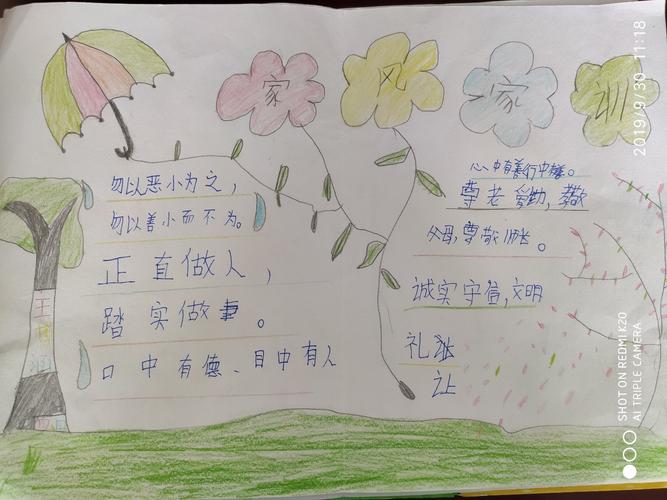 家风家训
勿以恶小为之，
勿以善小而不为。
正直做人，
踏实做事。
口中有德、目中有人
心中有善行中善。
尊老爱幼，孝敬
父母，尊敬师长。
诚实守信，文明
礼让
王
2019/9/30 11:18
SHOT ON REDMI K20
AI TRIPLE CAMERA